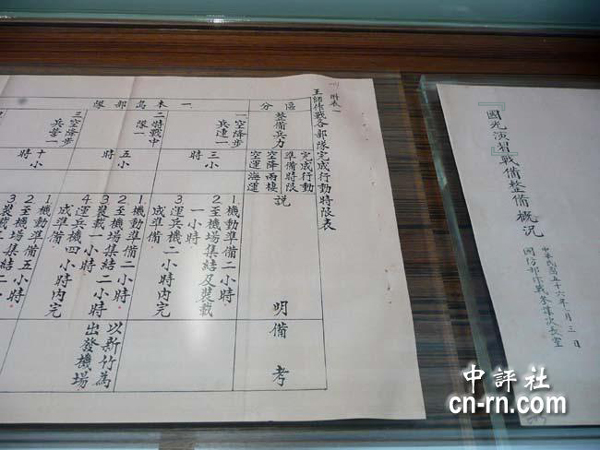 『國光演習』戰備整備概況
中華民國五十六年 月三日
國防部作戰參謀次長室
附表一
王師作戰各部隊完成行動時限表
區分
整備兵力
完成行動
準備時限
空降兩棲
空運海運
說明
備考
一本島部隊
一空降步
兵連一
三小
時
1機動準備二小時
2至機場集結及裝載
一小時
3運兵機二小時內完
成準備
二特戰中
隊
五小
時
1機動準備二小時
2至機場集結二小時
3裝載一小時
4運兵機四小時內完
成準備
以新竹為
出發機場
三空降步
兵營一
十小
時
1機動準備五小時
2至機場集結二
3裝載
中評社
cn-rn.com